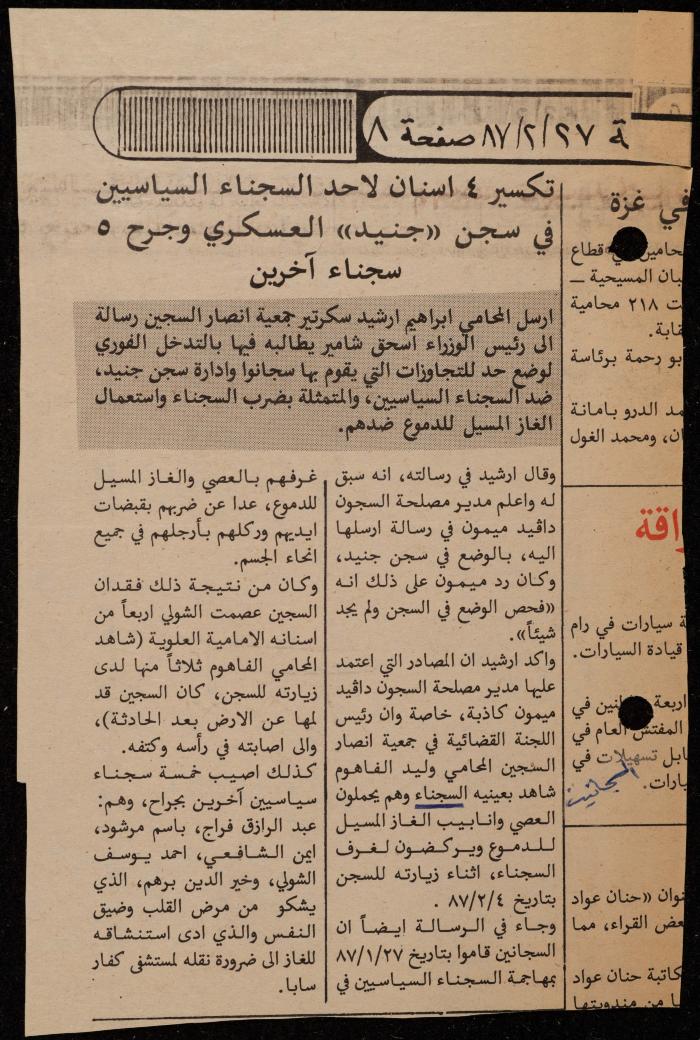 ة ٨٧/٢/٢٧ صفحة ٨
تكسير ٤ اسنان لاحد السجناء السياسيين
في سجن «جنيد» العسكري وجرح ٥
سجناء آخرين
ارسل المحامي ابراهيم ارشيد سكرتير جمعية انصار السجين رسالة
الى رئيس الوزراء اسحق شامير يطالبه فيها بالتدخل الفوري
لوضع حد للتجاوزات التي يقوم بها سجانوا وادارة سجن جنيد،
ضد السجناء السياسيين، والمتمثلة بضرب السجناء واستعمال
الغاز المسيل للدموع ضدهم.
وقال ارشيد في رسالته، انه سبق
له واعلم مدير مصلحة السجون
داڤيد ميمون في رسالة ارسلها
اليه، بالوضع في سجن جنيد،
وكان رد ميمون على ذلك انه
«فحص الوضع في السجن ولم يجد
شيئاً».
واكد ارشيد ان المصادر التي اعتمد
عليها مدير مصلحة السجون داڤيد
ميمون كاذبة، خاصة وان رئيس
اللجنة القضائية في جمعية انصار
السجين المحامي وليد الفاهوم
شاهد بعينيه السجناء وهم يحملون
العصي وانابيب الغاز المسيل
للدموع ويركضون لغرف
السجناء، اثناء زيارته للسجن
بتاريخ ٨٧/٢/٤ .
وجاء في الرسالة ايضاً ان
السجانين قاموا بتاريخ ٨٧/١/٢٧
بمهاجمة السجناء السياسيين في
غرفهم بالعصي والغاز المسيل
للدموع، عدا عن ضربهم بقبضات
ايديهم وركلهم بأرجلهم في جميع
انحاء الجسم.
وكان من نتيجة ذلك فقدان
السجين عصمت الشولي اربعاً من
اسنانه الامامية العلوية (شاهد
المحامي الفاهوم ثلاثاً منها لدى
زيارته للسجن، كان السجين قد
لمها عن الارض بعد الحادثة)،
والى اصابته في رأسه وكتفه.
كذلك اصيب خمسة سجناء
سياسيين آخرين بجراح، وهم:
عبد الرازق فراج، باسم مرشود،
ايمن الشافعي، احمد يوسف
الشولي، وخير الدين برهم، الذي
يشكو من مرض القلب وضيق
النفس والذي ادى استنشاقه
للغاز الى ضرورة نقله لمستشفى كفار
سابا.
في غزة
حامين في قطاع
بان المسيحية ــ
ت ٢١٨ محامية
قابة.
بو رحمة برئاسة
مد الدرو بامانة
ان، ومحمد الغول
راقة
ة سيارات في رام
قيادة السيارات.
اربعة في
المفتش العام في
ابل تسهيلات في
يارات.
السجانين
نوان «حنان عواد
عض القراء، مما
كاتبة حنان عواد
ا من مندوبتها